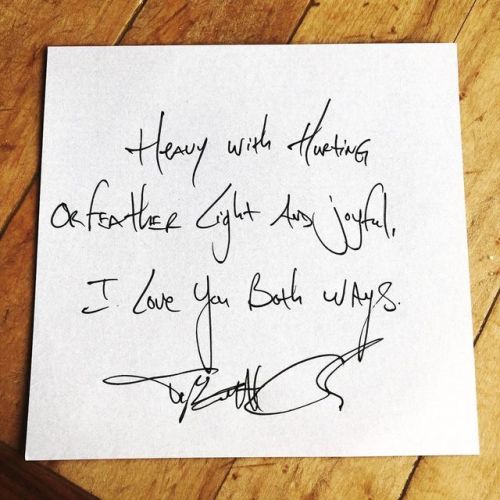 Heavy with Hurting
Or feather Light And joyful,
I Love You Both ways.